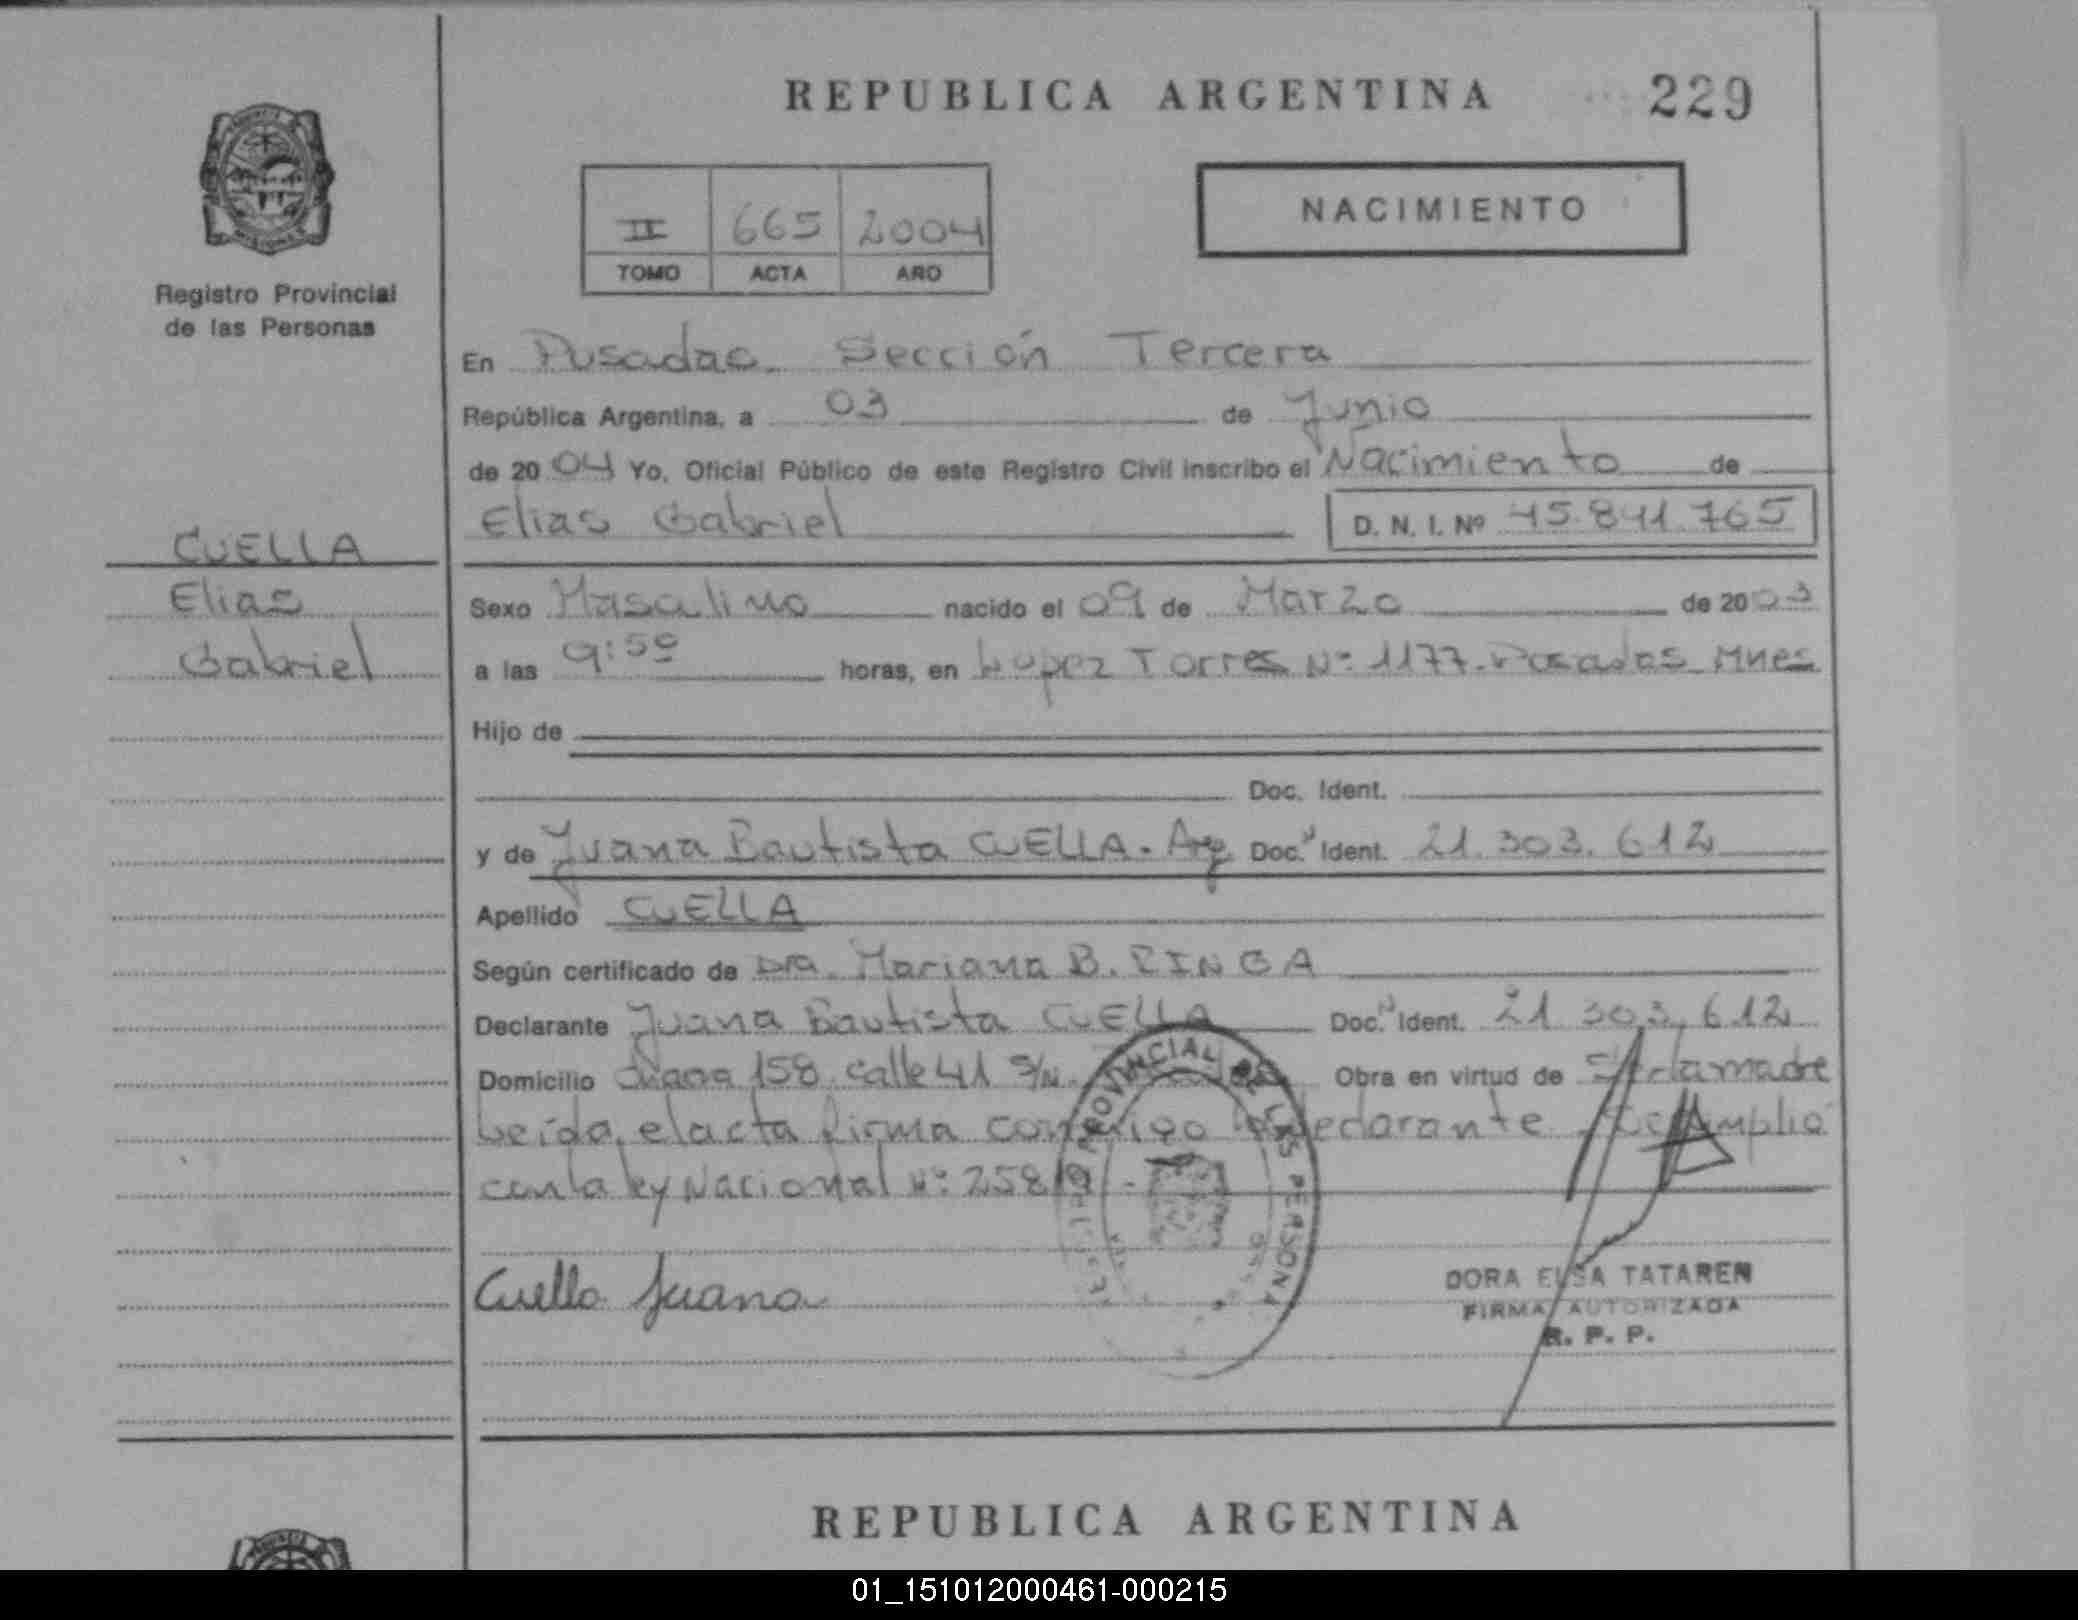 REPUBLICA ARGENTINA 229
II 665 2004
TOMO ACTA AÑO
NACIMIENTO
MISIONES
Registro Provincial
de las Personas
En Posadas. Sección Tercera
República Argentina, a 03 de Junio
de 2004 Yo, Oficial Público de este Registro Civil inscribo el Nacimiento de
Elias Gabriel D. N. I. Nº 45.841.765
CUELLA
Elias
Gabriel
Sexo Masculino nacido el 09 de Marzo de 2003
a las 9:50 horas, en Lopez Torres Nº 1177. Posadas Mnes
Hijo de
Doc. Ident.
y de Juana Bautista CUELLA. Arg. Doc. Ident. 21.303.612
Apellido CUELLA
Según certificado de Dra. Mariana B.
Declarante Juana Bautista CUELLA Doc. Ident. 21.303.612
Domicilio 158 calle 41 S/N. Obra en virtud de la madre
Leída el acta firma conmigo la declarante. Se cumplio
con la ley Nacional Nº 25819 -
PROVINCIAL DE LAS PERSONAS
Cuella Juana
DORA ELSA TATAREN
FIRMA AUTORIZADA
R. P. P.
REPUBLICA ARGENTINA
01_151012000461-000215